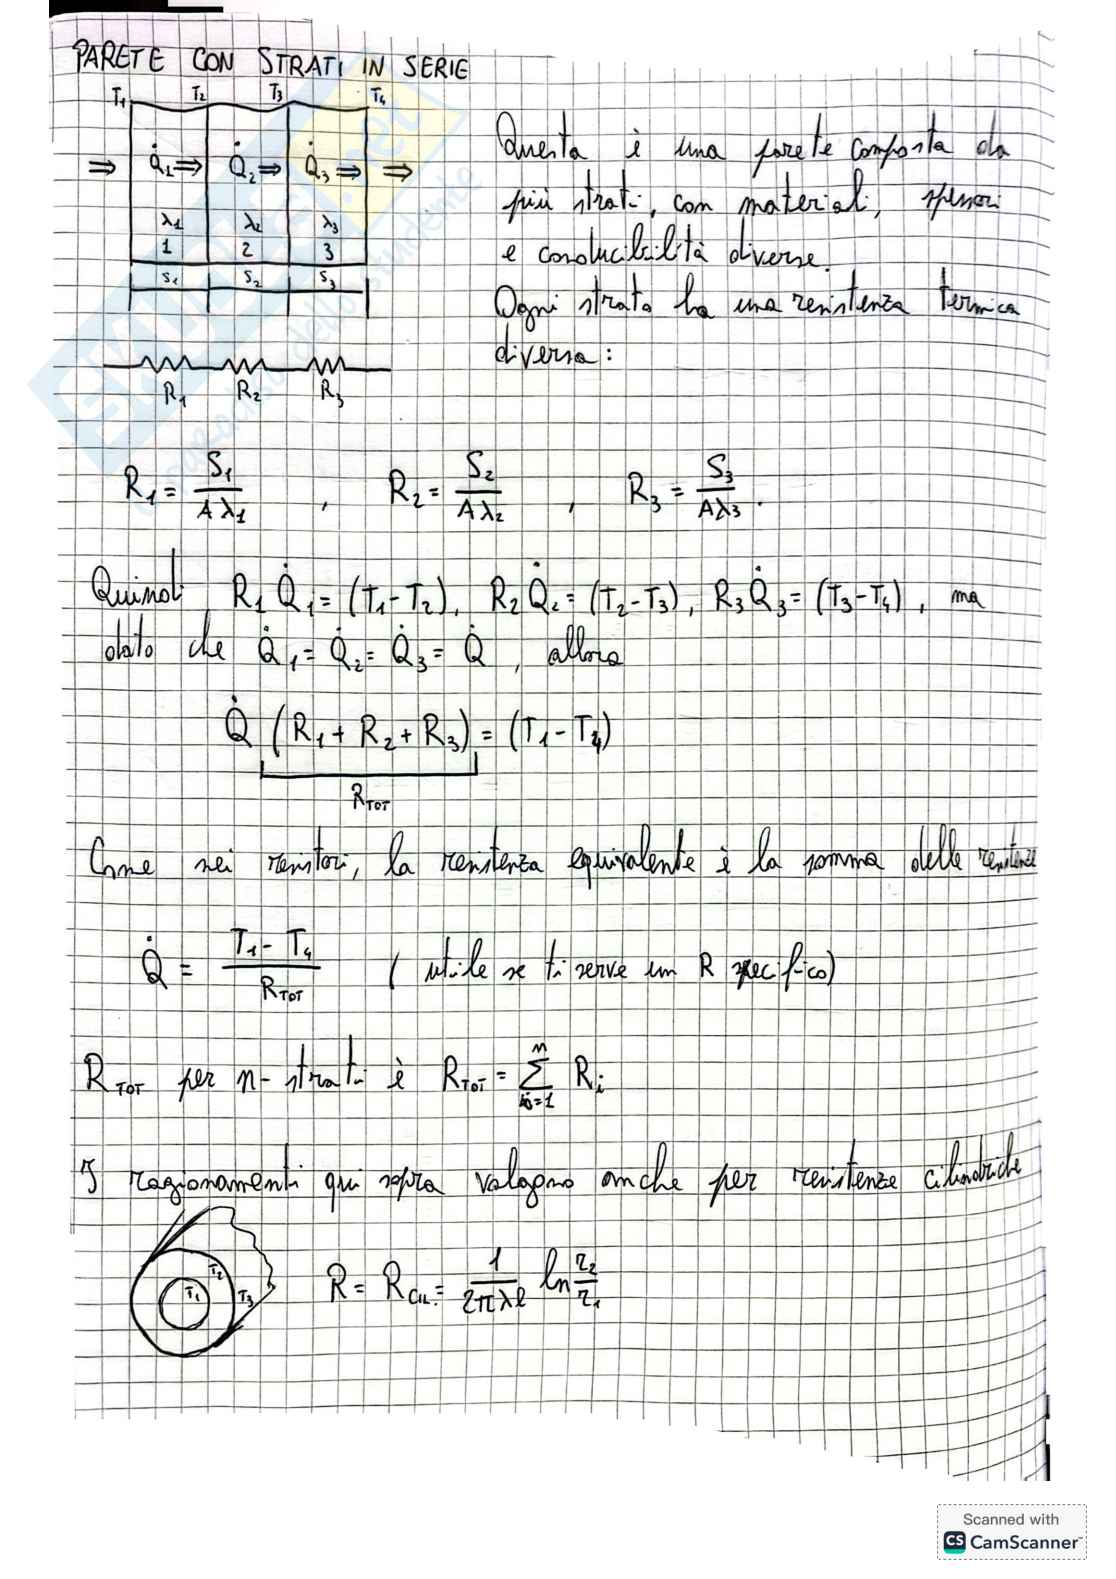 PARETE CON STRATI IN SERIE
T1 T2 T3 T4
⇒ Q̇1 ⇒ Q̇2 ⇒ Q̇3 ⇒ ⇒
λ1 λ2 λ3
1 2 3
S1 S2 S3
R1 R2 R3
Questa è una parete composta da
più strati, con materiali, spessori
e conducibilità diverse.
Ogni strato ha una resistenza termica
diversa:
R1 = S1/(Aλ1) , R2 = S2/(Aλ2) , R3 = S3/(Aλ3) .
Quindi R1 Q̇1 = (T1-T2), R2 Q̇2 = (T2-T3), R3 Q̇3 = (T3-T4), ma
dato che Q̇1 = Q̇2 = Q̇3 = Q̇ , allora
Q̇ (R1 + R2 + R3) = (T1 - T4)
RTOT
Come nei resistori, la resistenza equivalente è la somma delle resistenze
Q̇ = (T1 - T4)/RTOT ( utile se ti serve un R specifico)
RTOT per n-strati è RTOT = ∑ i=1 n Ri
I ragionamenti qui sopra valogno anche per resistenze cilindriche
T1 T2 T3
R = RCIL. = 1/(2πλl) ln r2/r1
Scanned with
CS CamScanner